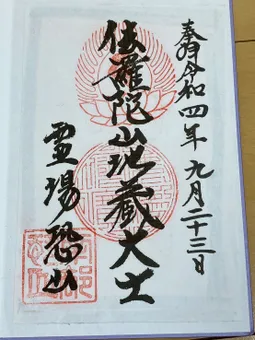 奉拝 令和四年九月二十三日
伽羅陀山地蔵大士
霊場恐山